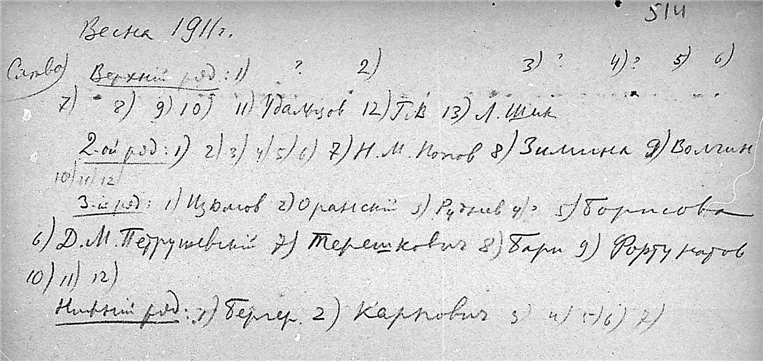 514
Весна 1911г.
(Слева) Верхний ряд: 1) ? 2) 3) ? 4) ? 5) 6)
7) 8) 9) 10) 11) Удальцов 12) Г.В 13) Л. Шик
2-ой ряд: 1) 2) 3) 4) 5) 6) 7) Н.М. Попов 8) Зимина 9) Волгин
10) 11) 12)
3-й ряд: 1) Изюмов 2) Оранский 3) Руднев 4) ? 5) Борисова
6) Д.М. Петрушевский 7) Терешкович 8) Бари 9) Фортунатов
10) 11) 12)
Нижний ряд: 1) Бергер. 2) Карпович 3) 4) 5) 6) 7)